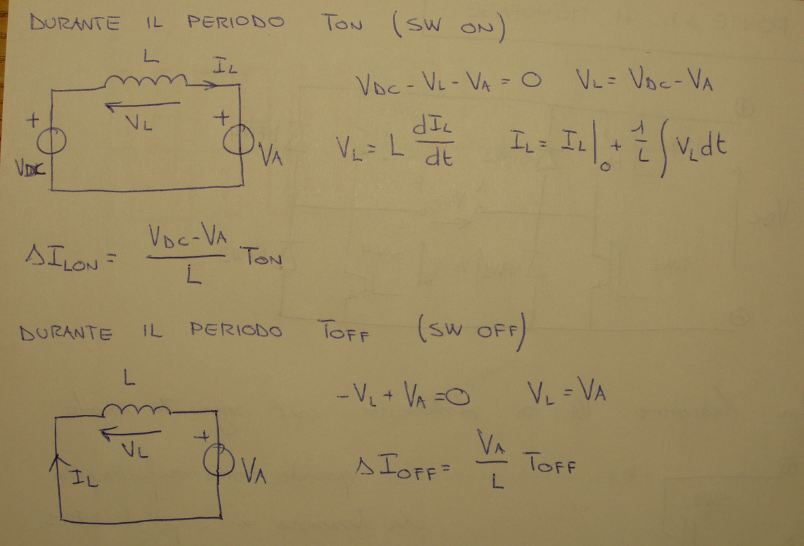 DURANTE IL PERIODO TON (SW ON)
L
IL
VL
+
VDC
+
VA
VDC - VL - VA = 0 VL = VDC - VA
VL = L dIL/dt IL = IL|0 + 1/L ∫ VL dt
ΔILON = VDC - VA / L TON
DURANTE IL PERIODO TOFF (SW OFF)
L
VL
IL
+
VA
-VL + VA = 0 VL = VA
ΔIOFF = VA / L TOFF